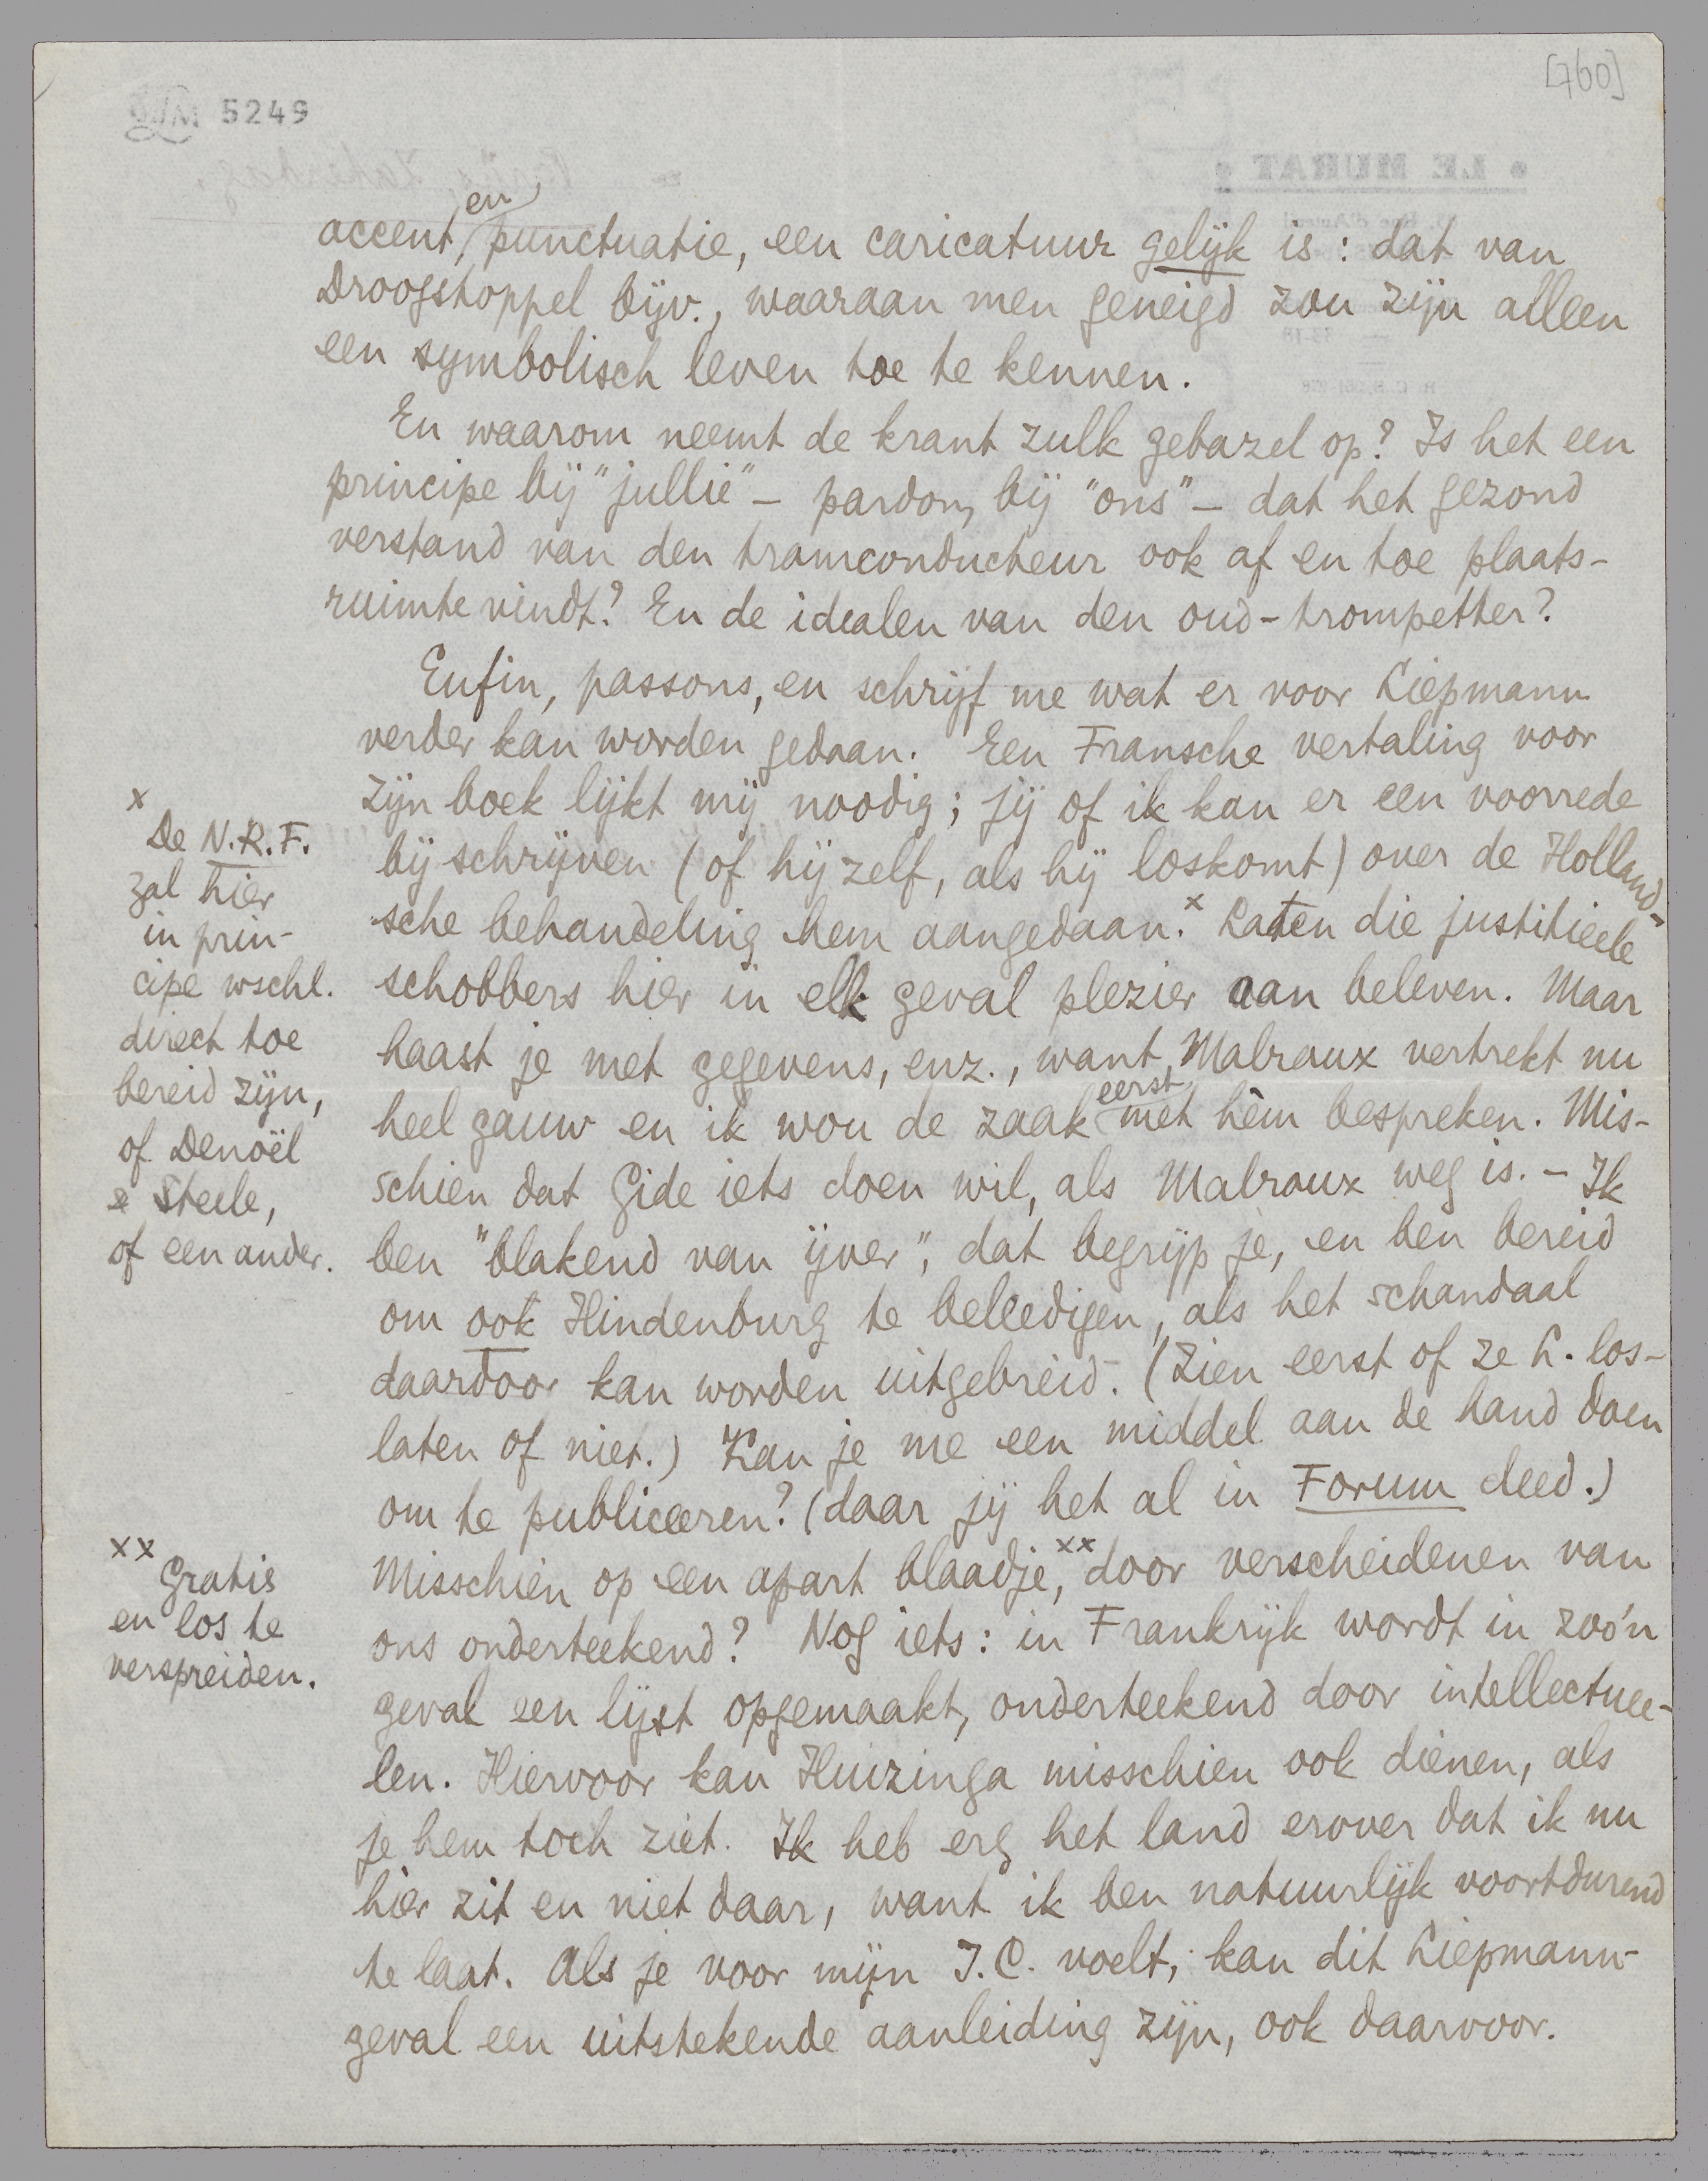 [760]
5249
accent, en punctuatie, een caricatuur gelijk is: dat van
Droogstoppel bijv., waaraan men geneigd zou zijn alleen
een symbolisch leven toe te kennen.
En waarom neemt de krant zulk gebazel op? Is het een
principe bij "jullie" – pardon, bij "ons" – dat het gezond
verstand van den tramconducteur ook af en toe plaats-
ruimte vindt? En de idealen van den oud-trompetter?
Enfin, passons, en schrijf me wat er voor Liepmann
verder kan worden gedaan. Een Fransche vertaling voor
zijn boek lijkt mij noodig; jij of ik kan er een voorrede
bij schrijven (of hij zelf, als hij loskomt) over de Holland-
sche behandeling hem aangedaan.x Laten die justitieele
schobbers hier in elk geval plezier aan beleven. Maar
haast je met gegevens, enz., want Malraux vertrekt nu
heel gauw en ik wou de zaak eerst met hèm bespreken. Mis-
schien dat Gide iets doen wil, als Malraux weg is. – Ik
ben "blakend van ijver", dat begrijp je, en ben bereid
om ook Hindenburg te beleedigen, als het schandaal
daardoor kan worden uitgebreid. (Zien eerst of ze L. los-
laten of niet.) Kan je me een middel aan de hand doen
om te publiceeren? (daar jij het al in Forum deed.)
Misschien op een apart blaadje,xx door verscheidenen van
ons onderteekend? Nog iets: in Frankrijk wordt in zoo'n
geval een lijst opgemaakt, onderteekend door intellectuee-
len. Hiervoor kan Huizinga misschien ook dienen, als
je hem toch ziet. Ik heb erg het land erover dat ik nu
hier zit en niet daar, want ik ben natuurlijk voortdurend
te laat. Als je voor mijn J.C. voelt, kan dit Liepmann-
geval een uitstekende aanleiding zijn, ook daarvoor.
x
De N.R.F.
zal hier
in prin-
cipe wschl.
direct toe
bereid zijn,
of Denoël
& Steele,
of een ander.
xx
Gratis
en los te
verspreiden.